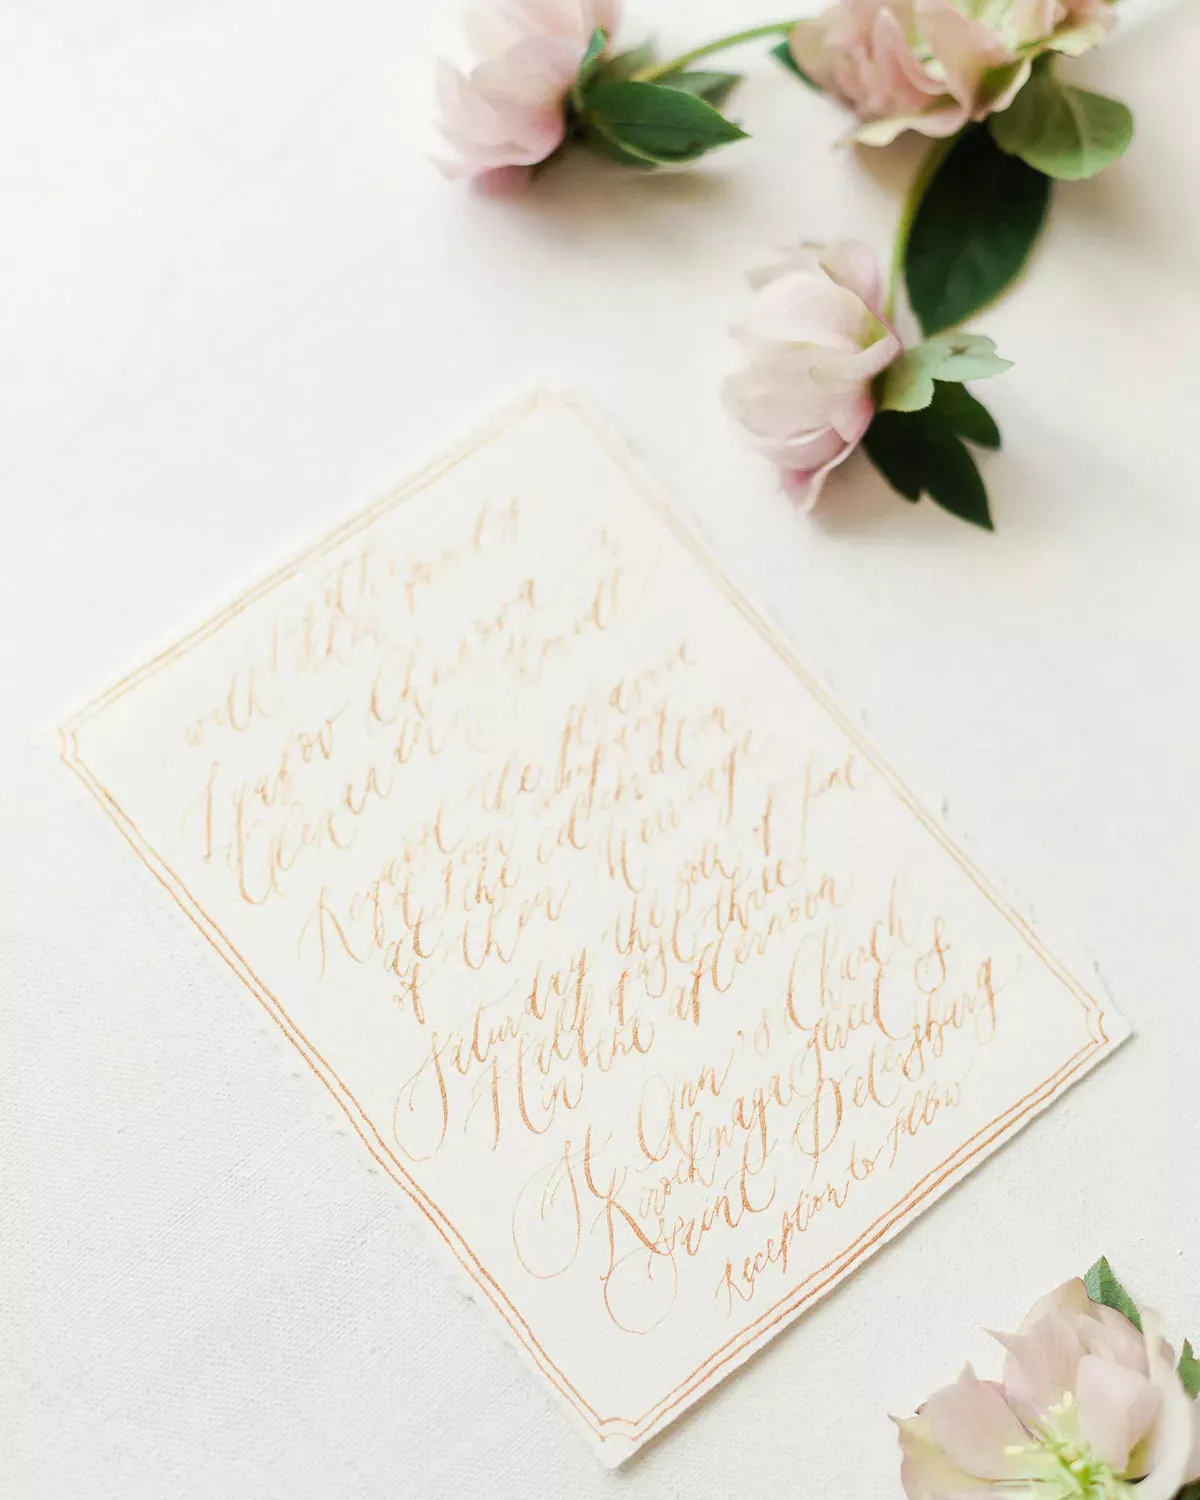 with their parents
Request the pleasure
of your company
at the celebration
of their Marriage
Saturday the 20th of June
Half past three
in the afternoon
St Ann's Church
Kirochnaya Street 8
Saint Petersburg
Reception to follow